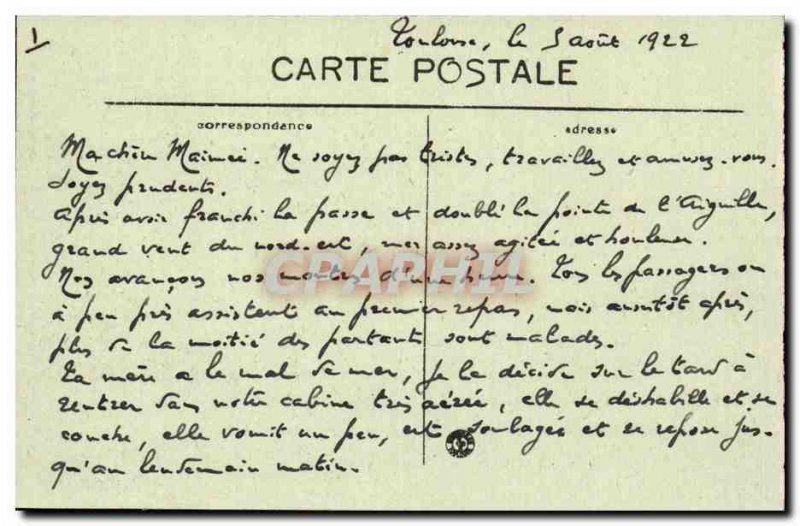 1
Toulouse, le 5 août 1922
CARTE POSTALE
correspondance
adresse
Ma chère Maimei. Ne soyez pas tristes, travaillez et amusez-vous.
Soyez prudents.
Après avoir franchi la passe et doublé la pointe de l'Aiguille,
grand vent du nord-est, mer assez agitée et houleuse.
Nos avançons nos montres d'une heure. Tous les passagers ou
à peu près assistent au premier repas, mais aussitôt après,
plus de la moitié des partants sont malades.
Ta mère a le mal de mer, je la décide sur le tard à
rentrer dans notre cabine très aérée, elle se déshabille et se
couche, elle vomit un peu, est soulagée et se repose jus-
qu'au lendemain matin.
GRAPHIL